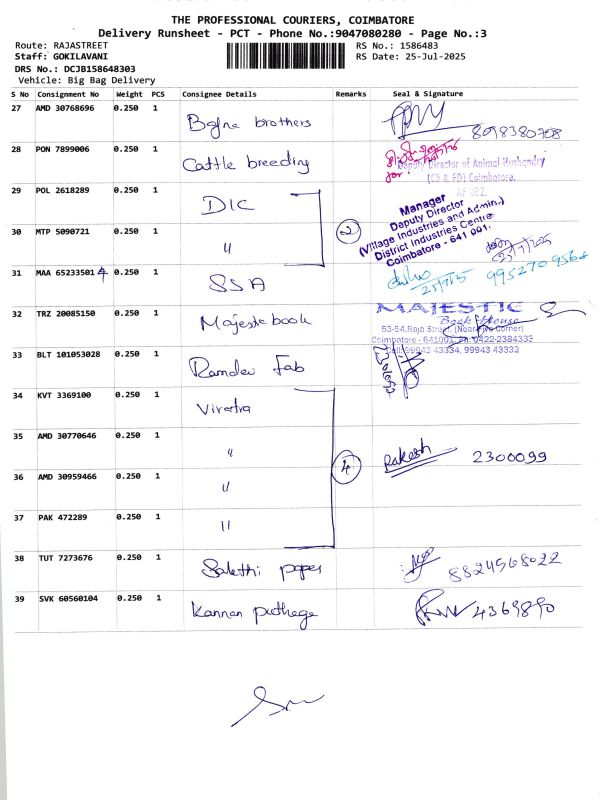 THE PROFESSIONAL COURIERS, COIMBATORE
Delivery Runsheet - PCT - Phone No.:9047080280 - Page No.:3
Route: RAJASTREET
RS No.: 1586483
Staff: GOKILAVANI
RS Date: 25-Jul-2025
DRS No.: DCJB158648303
Vehicle: Big Bag Delivery
S No Consignment No Weight PCS Consignee Details Remarks Seal & Signature
27 AMD 30768696 0.250 1 brothers
28 PON 7899006 0.250 1 Cattle breeding
Deputy Director of Animal Husbandry
(CB & FD) Coimbatore.
29 POL 2618289 0.250 1 DIC
Manager
Deputy Director
(Village Industries and Admin.)
District Industries Centre
Coimbatore - 641 001.
30 MTP 5090721 0.250 1 " 2
25/7/2025
31 MAA 65233501 4 0.250 1 SSA
25/7/25 9952709568
32 TRZ 20085150 0.250 1 Majestic book
MAJESTIC
Book House
53-54,Raja Street, (Near Five Corner)
Coimbatore - 641001. Ph: 0422-2384333
Cell: 99943 43334, 99943 43332
33 BLT 101053028 0.250 1 Ramdev Fab
34 KVT 3369100 0.250 1 Viratra
35 AMD 30770646 0.250 1 "
4 Rakesh 2300099
36 AMD 30959466 0.250 1 "
37 PAK 472289 0.250 1 "
38 TUT 7273676 0.250 1 Sakthi paper 8824568022
39 SVK 60560104 0.250 1 Kannan puthaga 4369890